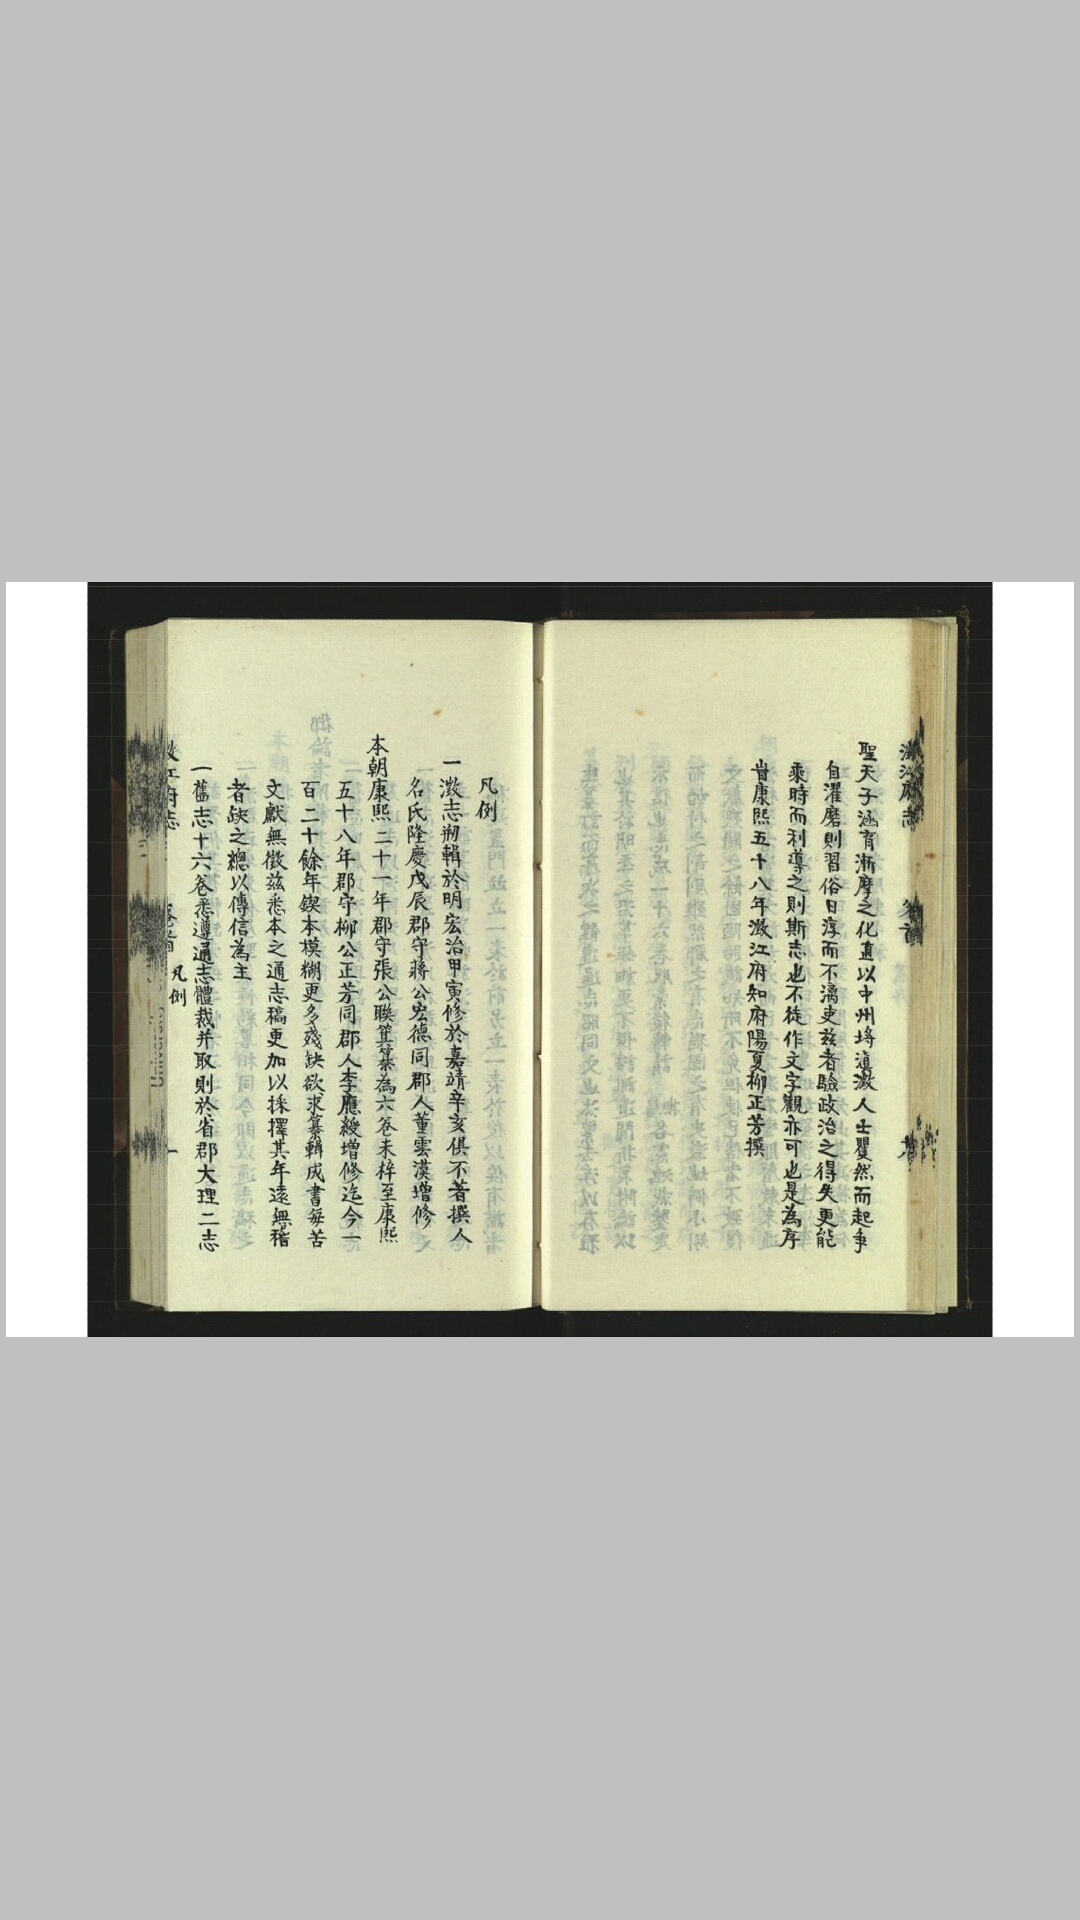 澂江府志
聖天子涵育漸摩之化直以中州埓滇澂人士矍然而起争
自濯磨則習俗日淳而不漓吏兹者驗政治之得失更能
乘時而利導之則斯志也不徒作文字觀亦可也是為序
旹康熙五十八年澂江府知府陽夏柳正芳撰
凡例
一澂志刱輯於明宏治甲寅修於嘉靖辛亥俱不著撰人
名氏隆慶戊辰郡守蔣公宏德同郡人董雲漢增修
本朝康熙二十一年郡守張公聯箕纂為六卷未梓至康熙
五十八年郡守柳公正芳同郡人李應綬增修迄今一
百二十餘年鍥本模糊更多殘缺欲求纂輯成書每苦
文獻無徵兹悉本之通志稿更加以採擇其年遠無稽
者缺之總以傳信為主
一舊志十六卷悉遵通志體裁并取則於省郡大理二志
江府志
凡例
一